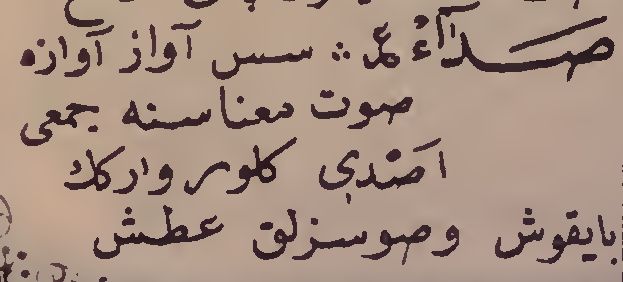 صَدَآءْ مدّ سس آواز آوازه
صوت معناسنه جمعى
اَصْدِى كلور وارركك
بايقوش وصوسزلق عطش